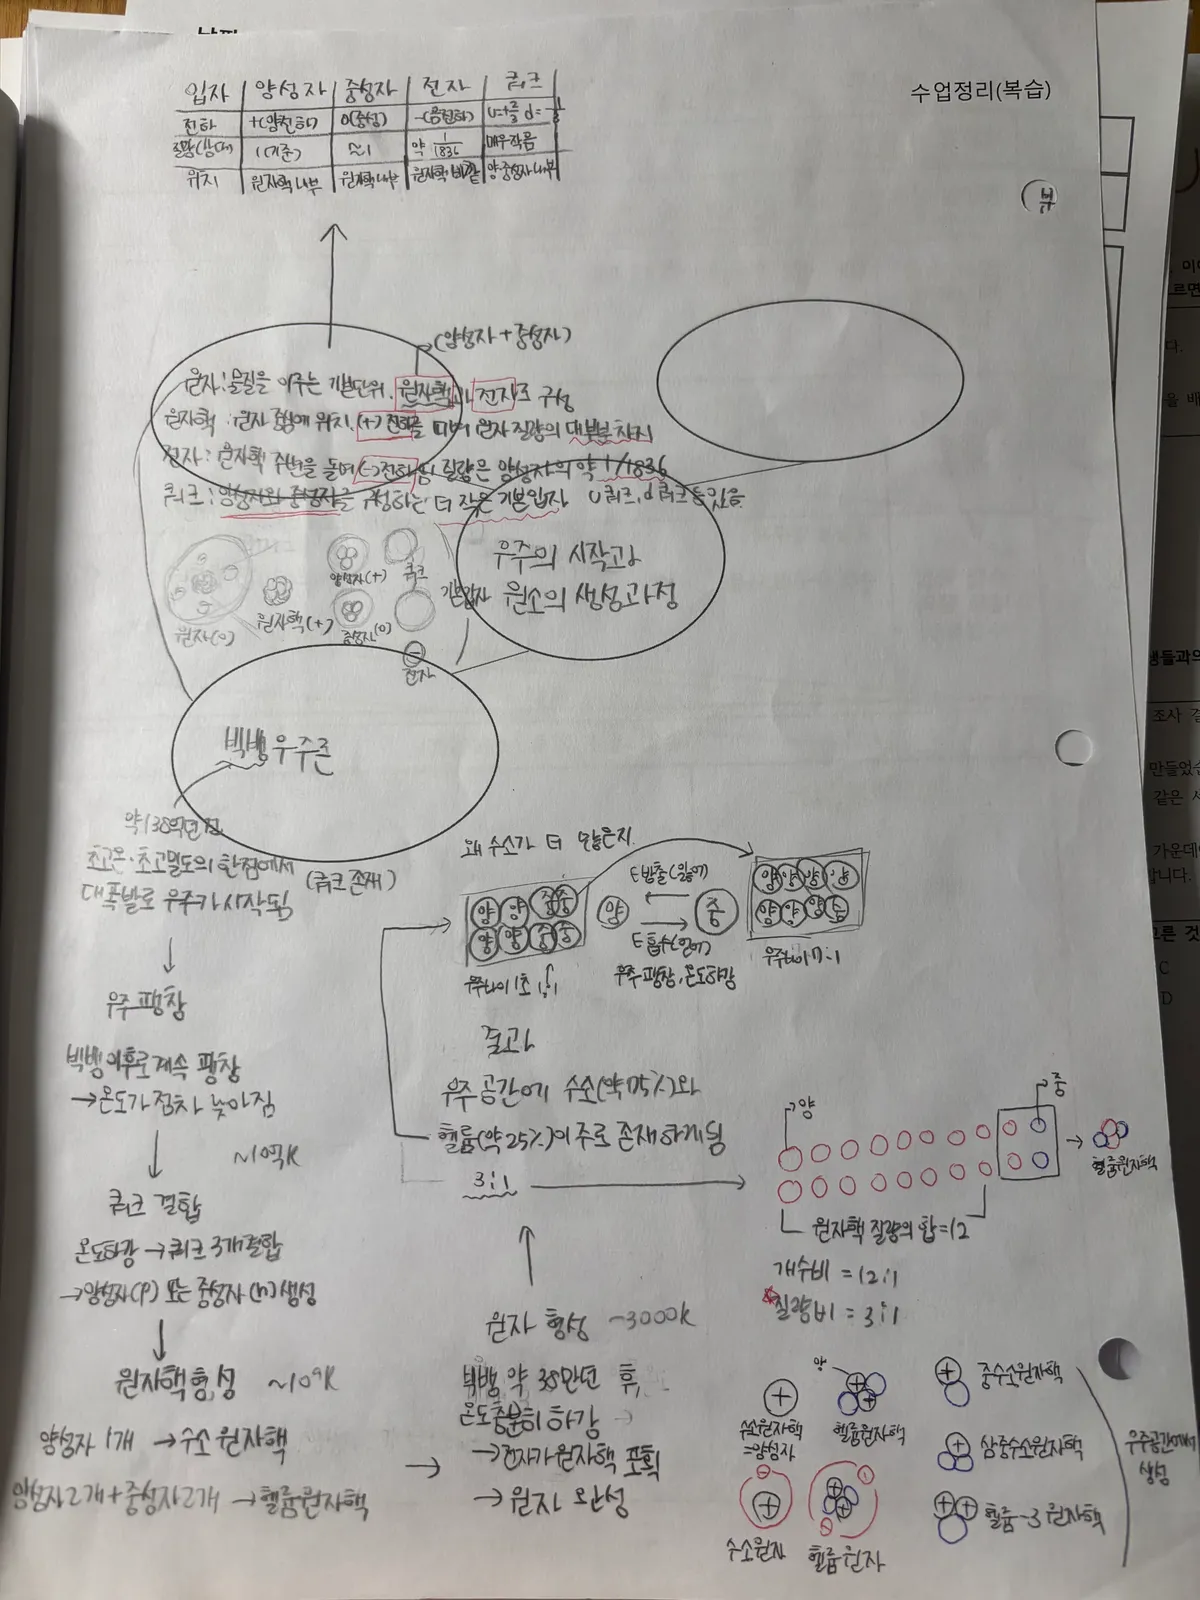 수업정리(복습)
입자 양성자 중성자 전자 쿼크
전하 +(양전하) 0(중성) -(음전하) u=+2/3 d=-1/3
질량(상대) 1(기준) ≈1 약 1/1836 매우작음
위치 원자핵 내부 원자핵 내부 원자핵 바깥 양·중성자 내부
(양성자+중성자)
원자:물질을 이루는 기본단위. 원자핵과 전자로 구성
원자핵: 원자 중심에 위치. (+)전하를 띠며 원자 질량의 대부분 차지
전자: 원자핵 주변을 돌며 (-)전하 띰 질량은 양성자의 약 1/1836
쿼크: 양성자와 중성자를 구성하는 더 작은 기본입자 u쿼크, d쿼크 등 있음
우주의 시작과
원소의 생성과정
원자(0)
원자핵(+)
양성자(+)
중성자(0)
쿼크
전자
기본입자
빅뱅우주론
약 138억년 전
초고온·초고밀도의 한점에서
(쿼크 존재)
대폭발로 우주가 시작됨
↓
우주 팽창
빅뱅이후로 계속 팽창
→온도가 점차 낮아짐
↓
쿼크 결합
온도하강→쿼크 3개결합
→양성자(p) 또는 중성자(n)생성
↓
원자핵형성 ~10⁹K
양성자 1개 →수소 원자핵
양성자2개+중성자2개→헬륨원자핵
→
원자 형성 ~3000K
빅뱅 약 38만년 후,
온도충분히 하강
→전자가 원자핵 포획
→원자 완성
↑
결과
우주 공간에 수소(약75%)와
헬륨(약25%)이 주로 존재하게됨
3:1
왜 수소가 더 많은지
양 양 중 중
양 양 중 중
우주나이 1초 1:1
E방출(잃어)
양 중
E흡수(얻어)
우주 팽창, 온도하강
양 양 양 양
양 양 양 중
우주나이 7:1
양
중
헬륨원자핵
원자핵 질량의 합=12
개수비 =12:1
질량비=3:1
수소원자핵
=양성자
양
헬륨원자핵
중수소원자핵
삼중수소원자핵
헬륨-3 원자핵
우주공간에서
생성
수소원자
헬륨원자